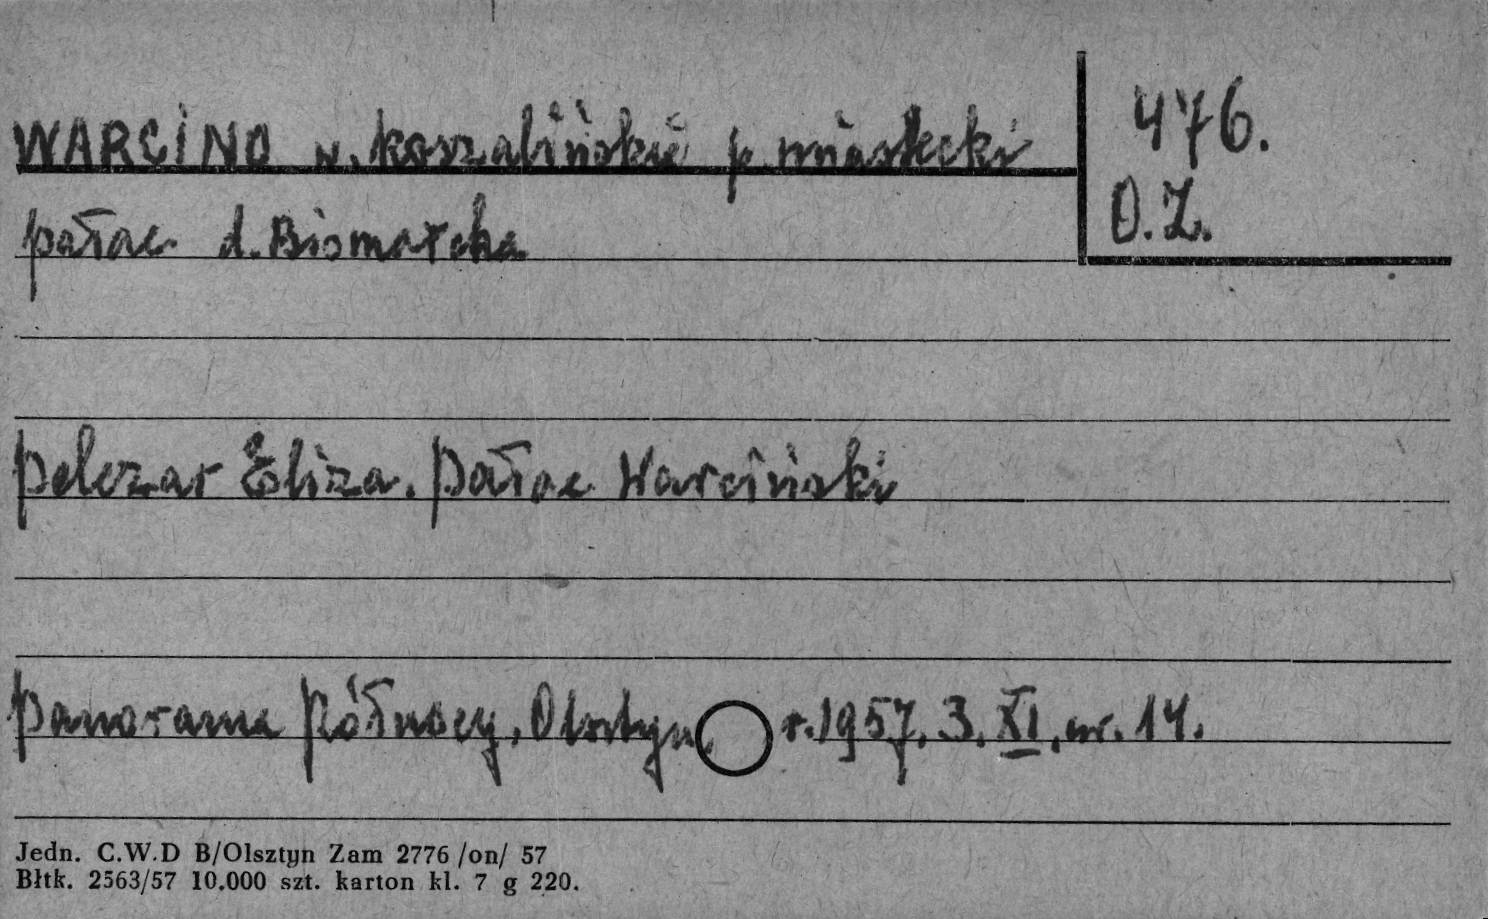 WARCINO w. koszalińskie p. miastecki
476.
O.Z.
pałac d. Bismarcka
Pelczar Eliza. Pałac Warciński
Panorama Północy, Olsztyn, r. 1957, 3. XI, nr. 14.
Jedn. C.W.D B/Olsztyn Zam 2776 /on/ 57
Błtk. 2563/57 10.000 szt. karton kl. 7 g 220.